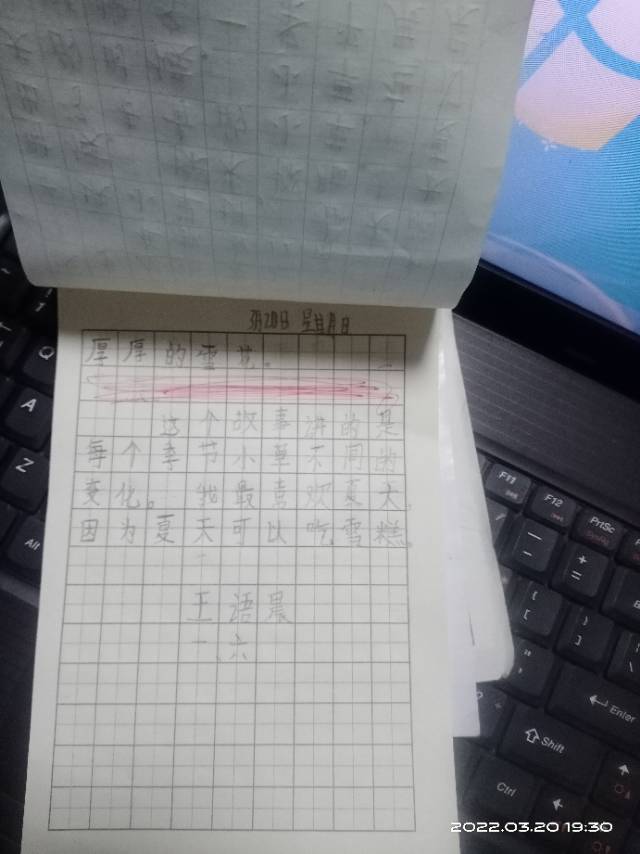 3月20日 星期日
厚厚的雪花。
这个故事讲的是
每个季节小草不同的
变化。我最喜欢夏天,
因为夏天可以吃雪糕。
王语晨
一、六
Q
A
Z
Alt
F11
F12
PrtSc
SysRq
Enter
Shift
Ctrl
2022.03.20 19:30